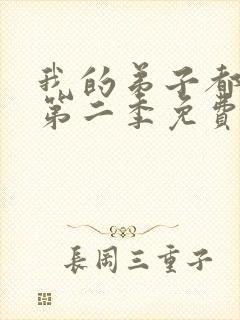 我的弟子都
第二季免費
長岡三重子